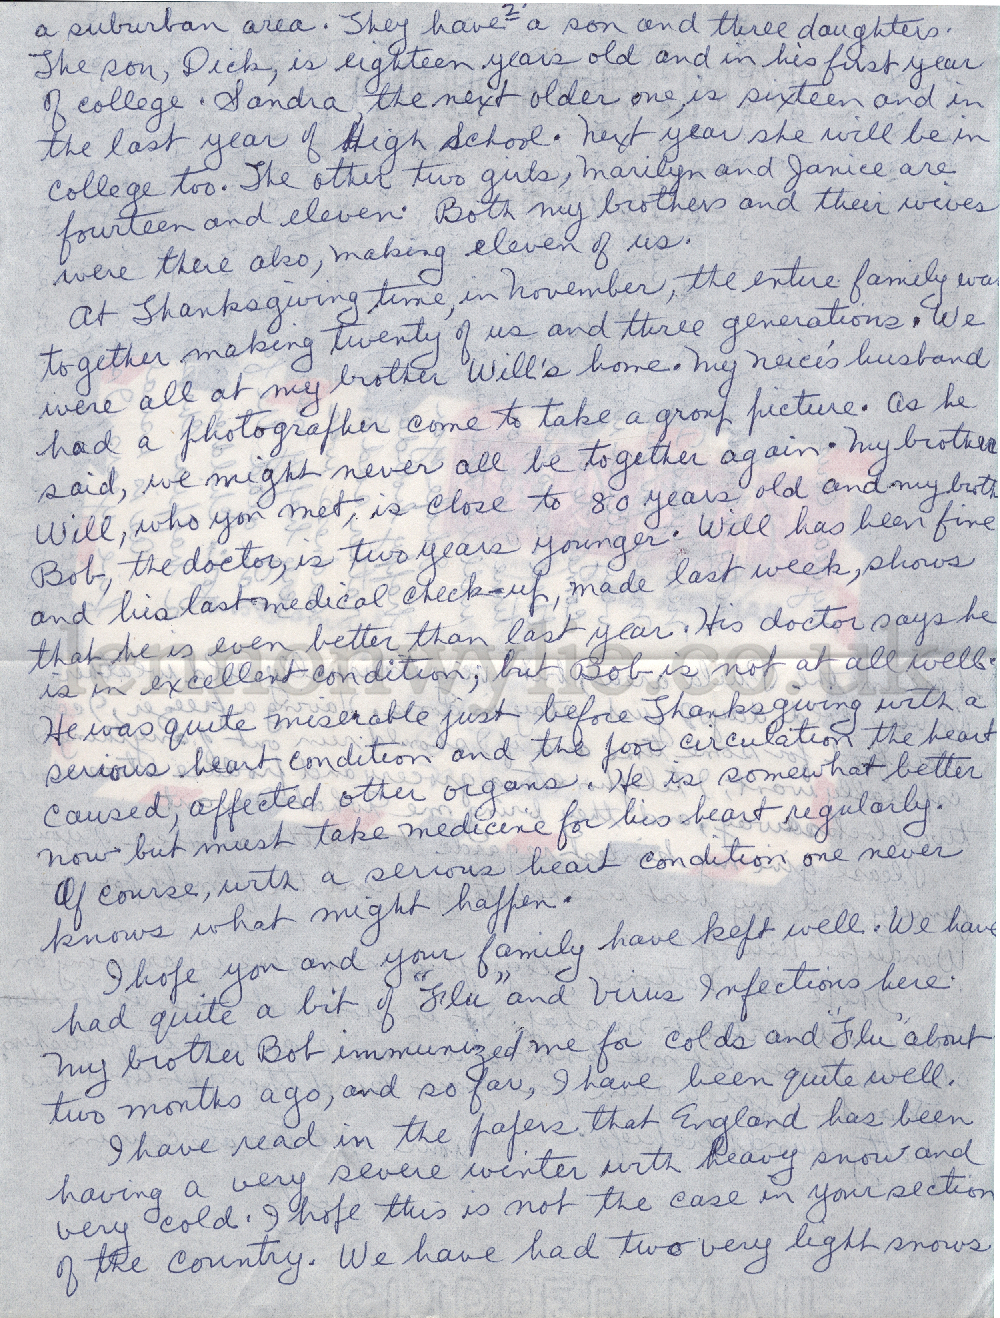 2.
a suburban area. They have a son and three daughters.
The son, Dick, is eighteen years old and in his first year
of college. Sandra, the next older one, is sixteen and in
the last year of High School. Next year she will be in
college too. The other two girls, Marilyn and Janice are
fourteen and eleven. Both my brothers and their wives
were there also, making eleven of us.
At Thanksgiving time, in November, the entire family was
together making twenty of us and three generations. We
were all at my brother Will's home. My neice's husband
had a photographer come to take a group picture. As he
said, we might never all be together again. My brother
Will, who you met, is close to 80 years old and my broth
Bob, the doctor, is two years younger. Will has been fine
and his last medical check-up, made last week, shows
that he is even better than last year. His doctor says he
is in excellent condition; but Bob is not at all well.
He was quite miserable just before Thanksgiving with a
serious heart condition and the poor circulation the heart
caused, affected other organs. He is somewhat better
now but must take medicine for his heart regularly.
Of course, with a serious heart condition one never
knows what might happen.
I hope you and your family have kept well. We have
had quite a bit of "Flu" and Virus Infections here.
My brother Bob immunized me for colds and "Flu" about
two months ago, and so far, I have been quite well.
I have read in the papers that England has been
having a very severe winter with heavy snow and
very cold. I hope this is not the case in your section
of the country. We have had two very light snows
lennonwylie.co.uk